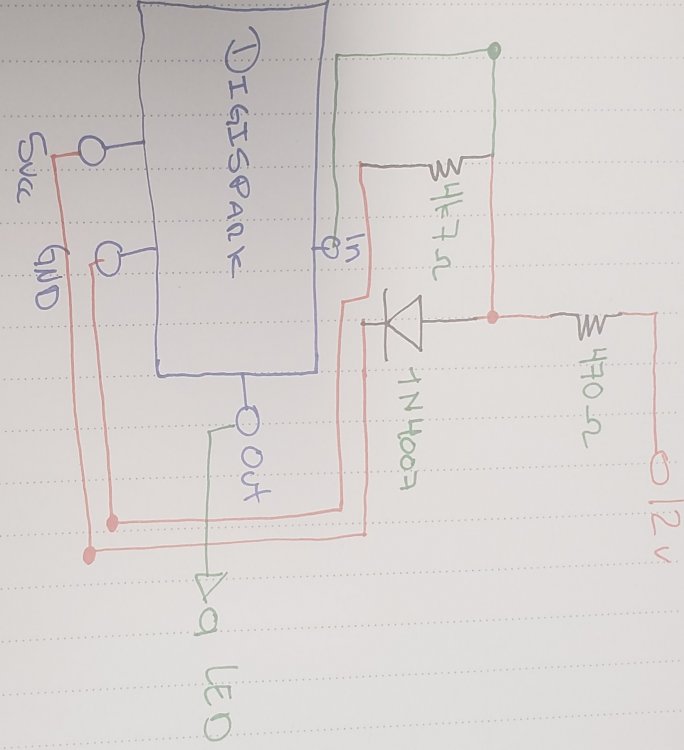 DIGISPARK
5Vcc
GND
In
Out
4k7Ω
1N4007
470Ω
12v
LED